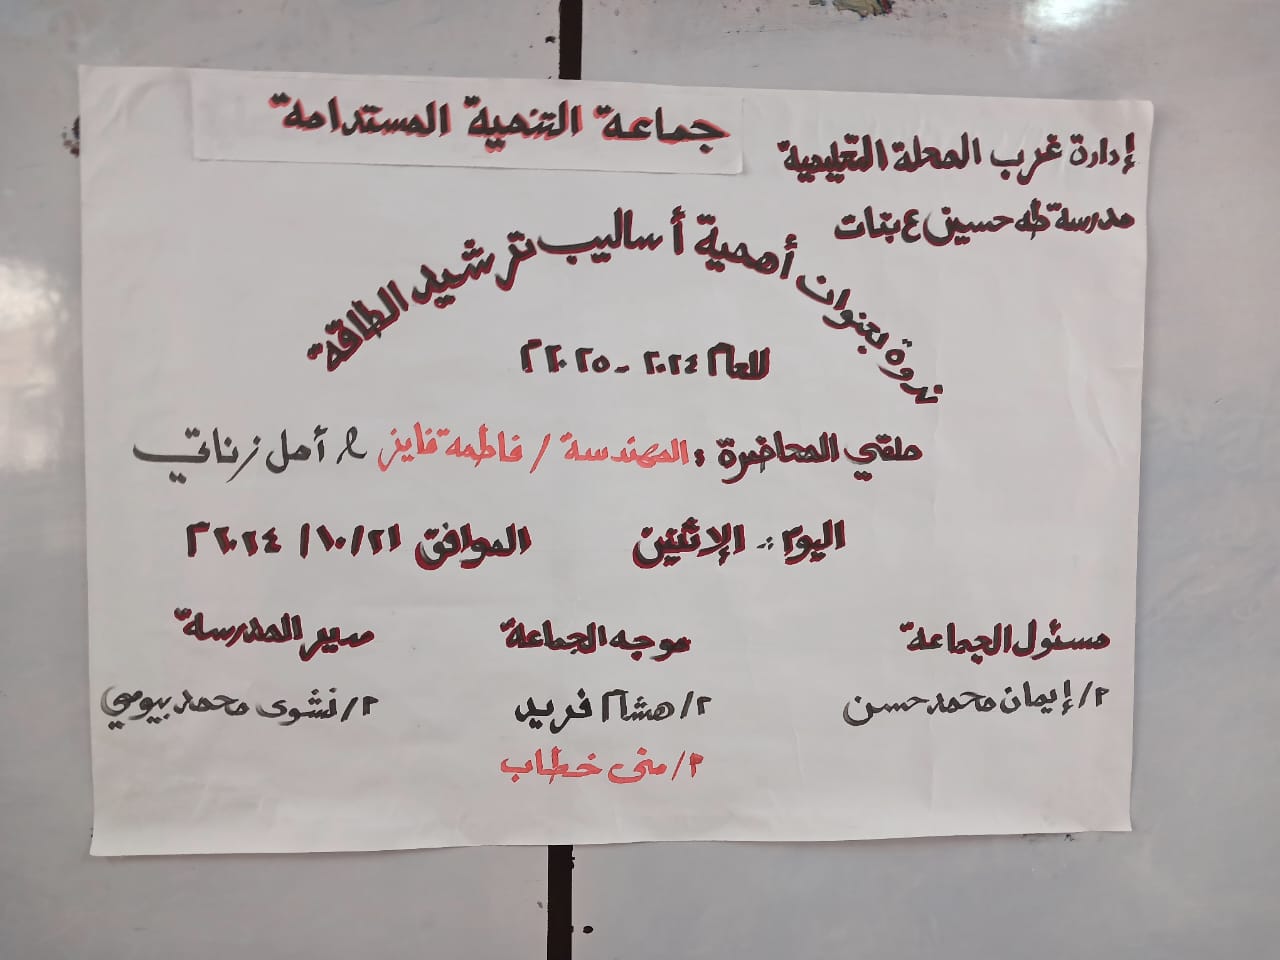 جماعة التنمية المستدامة
إدارة غرب المحلة التعليمية
مدرسة طه حسين ع بنات
ندوة بعنوان أهمية أساليب ترشيد الطاقة
للعام ٢٠٢٤ - ٢٠٢٥م
ملقي المحاضرة : المهندسة / فاطمة فايز & أمل زناتي
اليوم :- الإثنين الموافق ٢١/١٠/٢٠٢٤م
مسئول الجماعة موجه الجماعة مدير المدرسة
م/ إيمان محمد حسن م/ هشام فريد م/ نشوى محمد بيومي
م/ منى خطاب